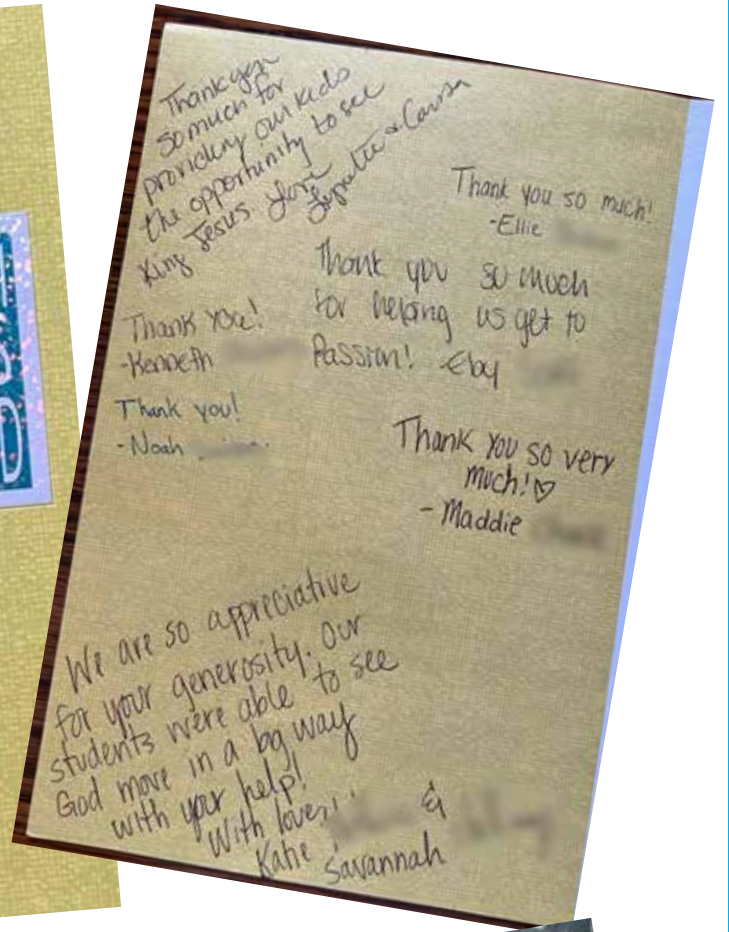 Thank you
so much for
providing our kids
the opportunity to see
King Jesus. Love
Thank you so much!
-Ellie
Thank you so much
for helping us get to
Passion!
Thank you!
-Kenneth
Thank you!
-Noah
Thank you so very
much!♡
- Maddie
We are so appreciative
for your generosity. Our
students were able to see
God move in a big way
with your help!
With love,
Katie &
Savannah